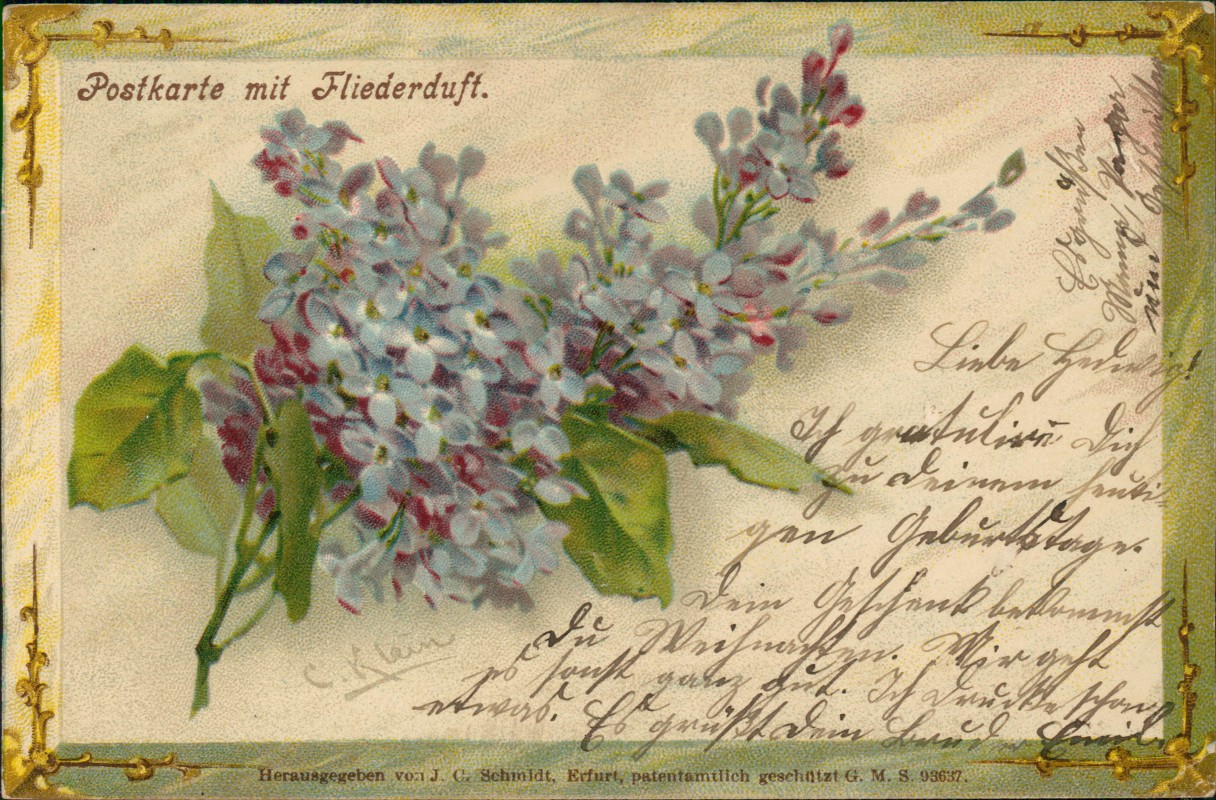 Postkarte mit Fliederduft.
Liebe Hedwig!
Ich gratulire Dich
zu deinem heuti-
gen Geburtstage.
Dein Geschenk bekommst
Du Weihnachten. Mir geht
es sonst ganz gut. Ich drucke schon
etwas. Es grüßt Dein Bruder Emil.
C. Klein
Herausgegeben von J. C. Schmidt, Erfurt, patentamtlich geschützt G. M. S. 93637.